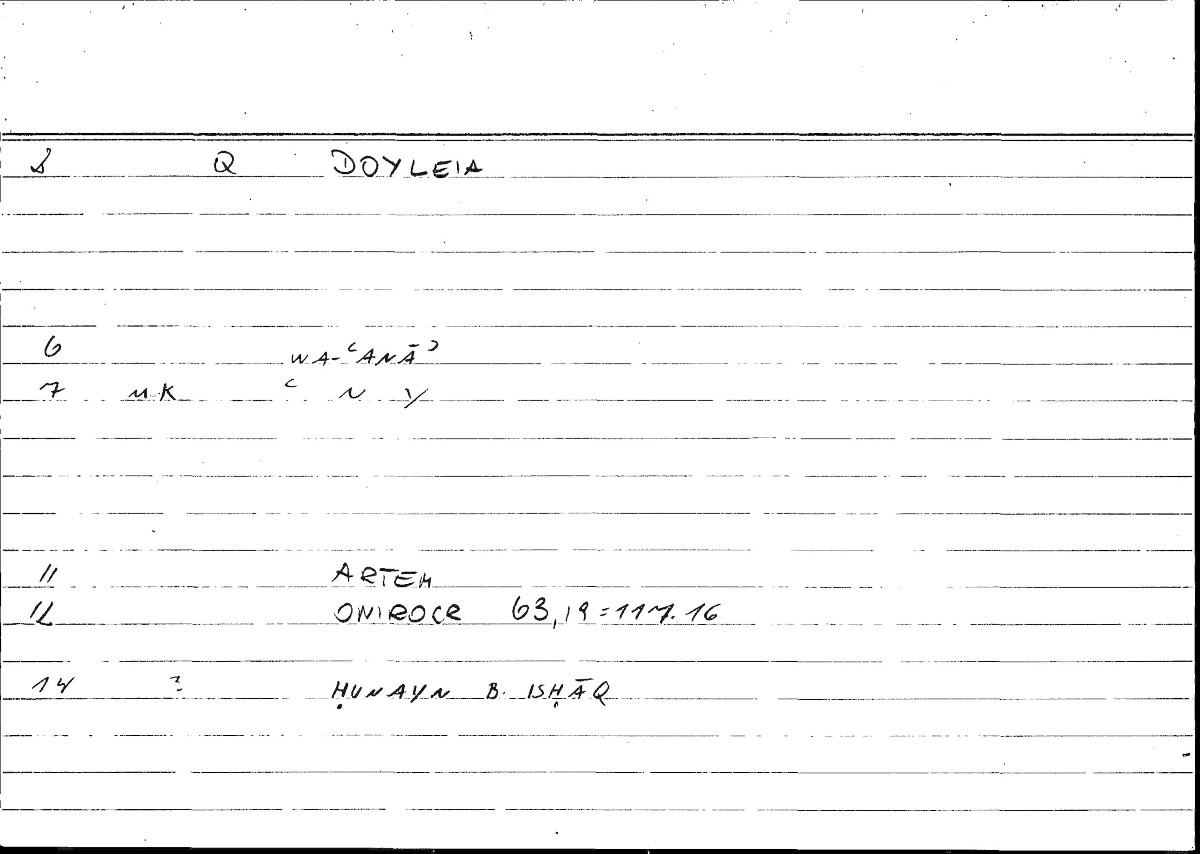 Q DOYLEIA
6 WA-ʿANĀʾ
7 MK ʿ N Y
11 ARTEM
12 ONIROCR 63,19=117.16
14 ? ḤUNAYN B. ISḤĀQ